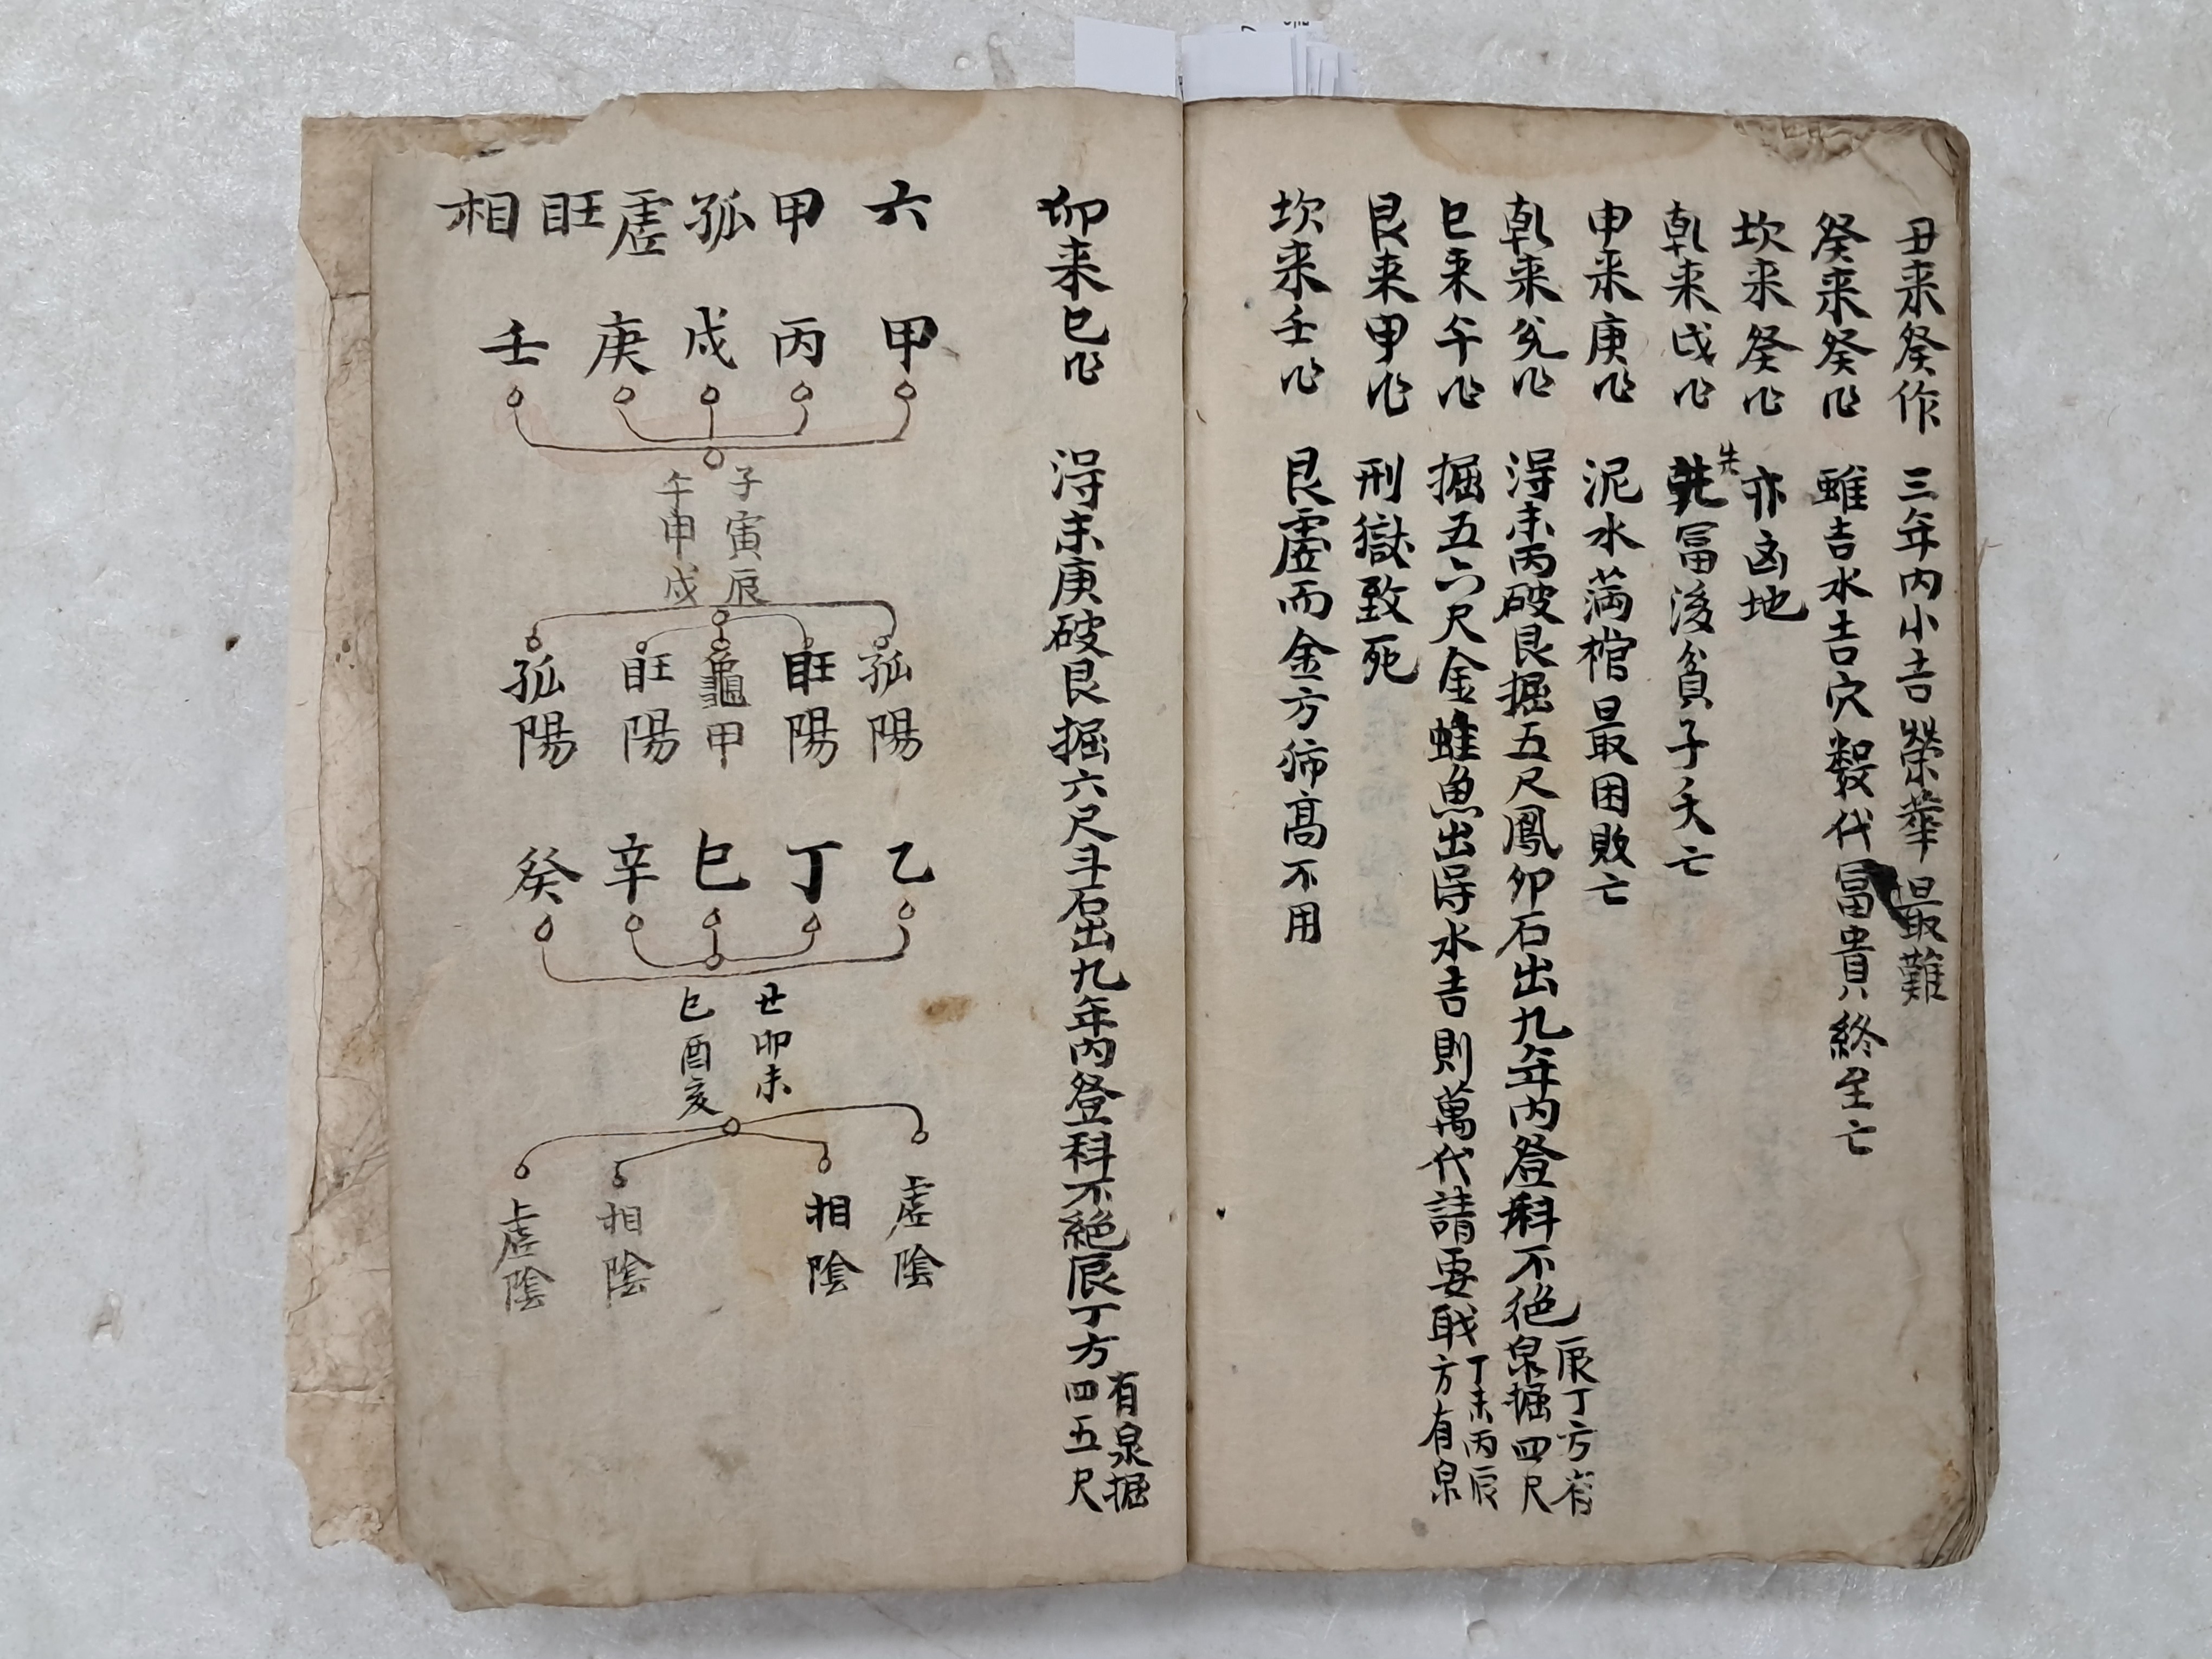 丑来癸作 三年內小吉榮華最難
癸来癸作 雖吉水吉穴數代冨貴終至亡
坎来癸作 亦凶地
乹来戌作 先冨後貧子夭亡
申来庚作 泥水満棺最困敗亡
乹来兊作 淂未丙破艮掘五尺鳳卵石出九年內登科不絶 辰丁方有
泉掘四尺
巳来午作 掘五六尺金蛙魚出淂水吉則萬代請要耿 丁未丙辰
方有泉
艮来甲作 刑獄致死
坎来壬作 艮虛而金方痛高不用
卯来巳作 淂未庚破艮掘六尺斗石出九年內登科不絶辰丁方 有泉掘
四五尺
六甲孤虛旺相
甲 丙 戊 庚 壬
子寅辰
午申戌
孤陽 旺陽 龜甲 旺陽 孤陽
乙 丁 巳 辛 癸
丑卯未
巳酉亥
虛陰 相陰 相陰 虛陰